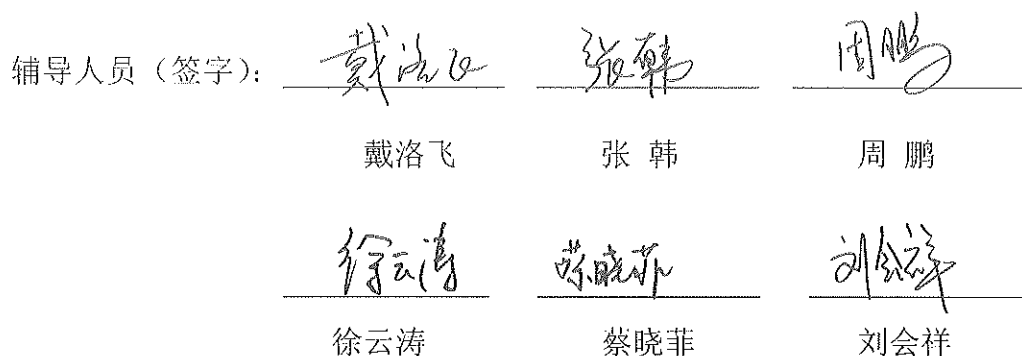 辅导人员（签字）： 戴洛飞 张韩 周鹏
戴洛飞 张 韩 周 鹏
徐云涛 蔡晓菲 刘会祥
徐云涛 蔡晓菲 刘会祥